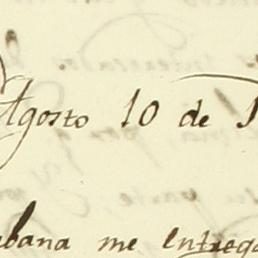 Agosto 10 de 1
abana me entrega